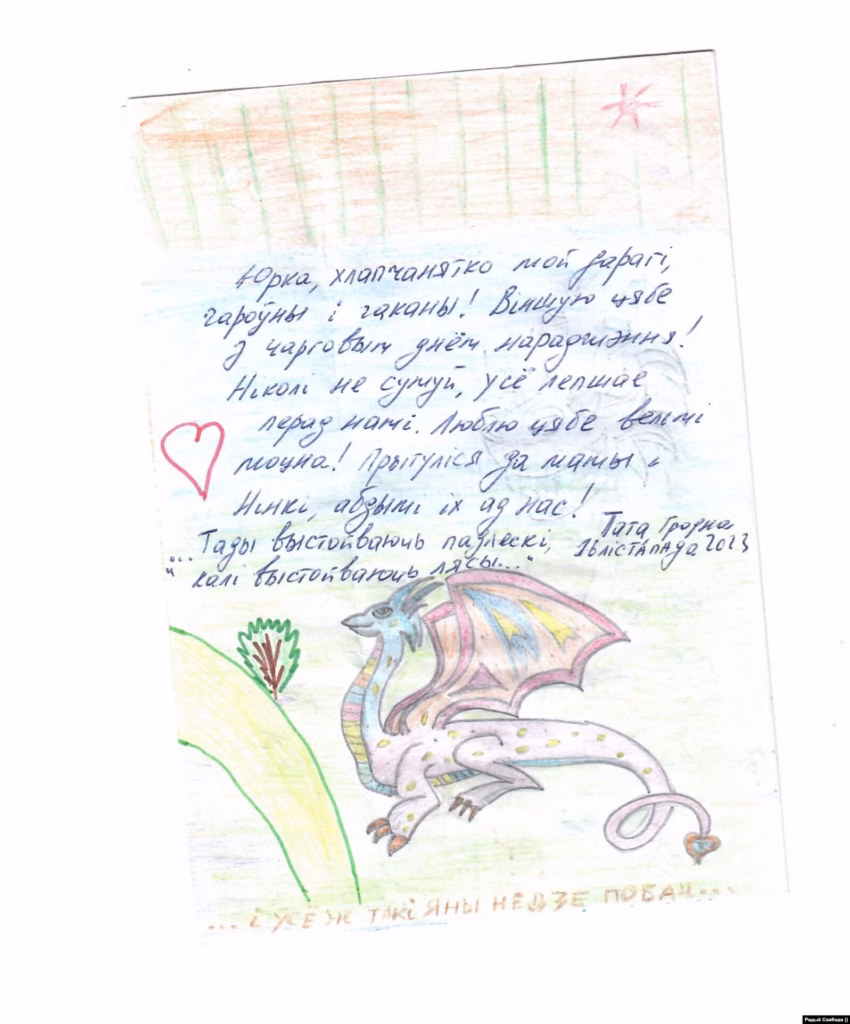 Юрка, хлапчанятко мой дарагі,
чароўны і чаканы! Віншую цябе
з чарговым днём нараджэння!
Ніколі не сумуй, усё лепшае
перад намі. Люблю цябе вельмі
моцна! Прытуліся да мамы і
Нінкі, абдымі іх ад нас!
Тата Гродна
16 лістапада 2023
"...Тады выстойваюць падлескі,
калі выстойваюць лясы..."
...і ўсё ж такі яны недзе побач...
Радыё Свабода ()